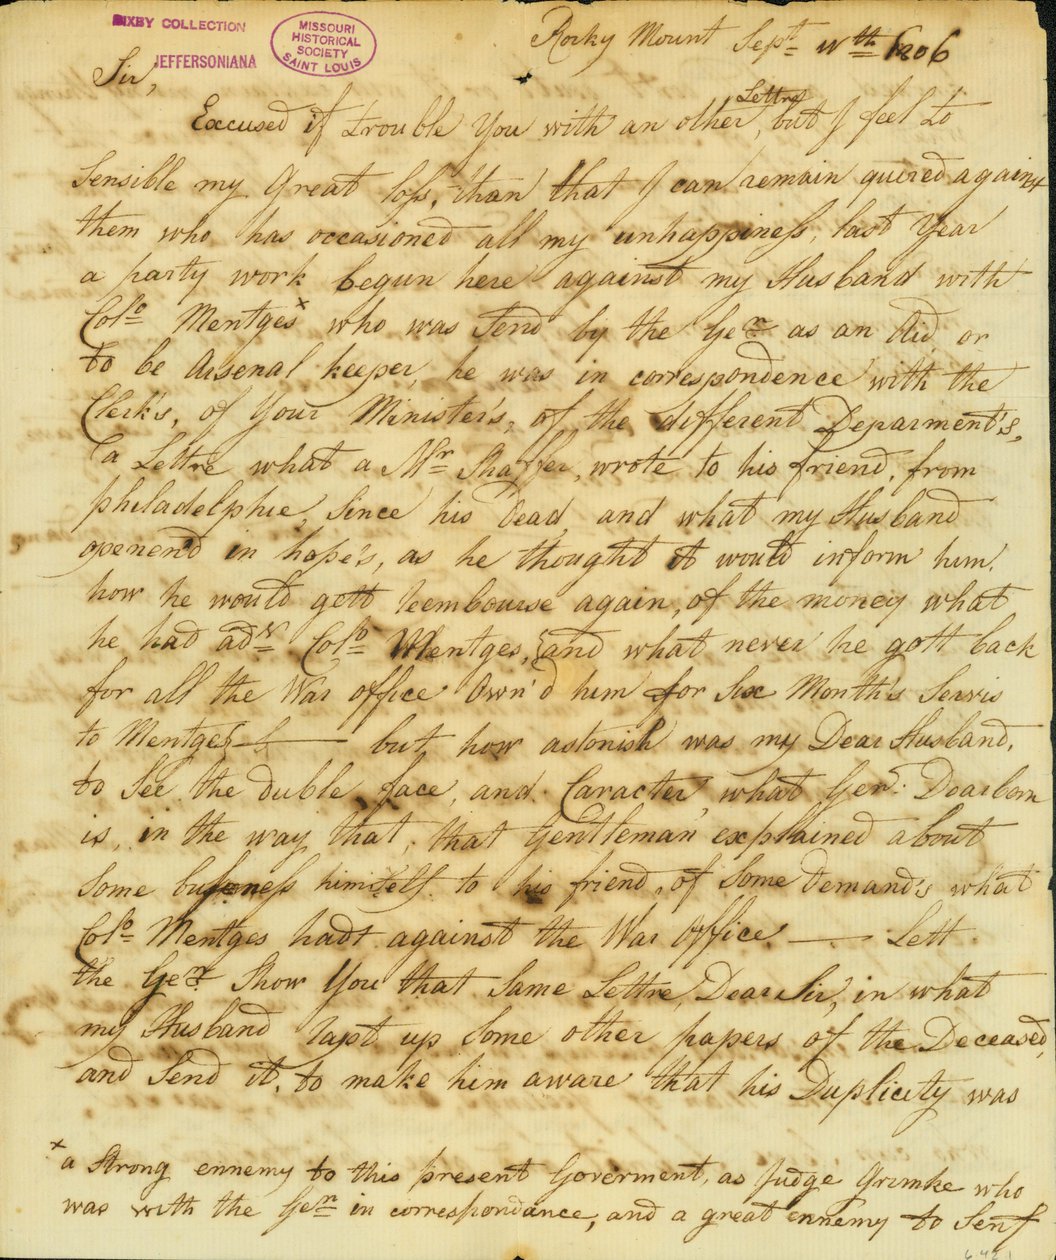 BIXBY COLLECTION
JEFFERSONIANA
MISSOURI
HISTORICAL
SOCIETY
SAINT LOUIS
Rocky Mount Sept 11th 1806
Sir,
Lettre
Excused if trouble You with an other, but I feel to
Sensible my Great loss, than that I can remain quired against
them who has occasioned all my unhappiness, last Year
a party work begun here against my Husband with
Colo Mentges x who was Send by the Gen as an Aid or
to be Arsenal keeper, he was in correspondence with the
Clerk's, of Your Minister's, of the different Deparment's,
a Lettre what a Mr Shaffer, wrote to his friend, from
Philadelphie, Since his Dead, and what my Husband
openen'd in hope's, as he thought it would inform him,
how he would gett reembourse again, of the money what
he had adn Colo Mentges, and what never he gott back
for all the War office Own'd him for Six Month's Servis
to Mentges — but, how astonish was my Dear Husband,
to See the duble face, and Caracter, what Genr. Dearborn
is, in the way that, that Gentleman explained about
Some business himself to his friend, of Some Demand's what
Colo Mentges hadt against the War office — Lett
the Genr Show You that Same Lettre, Dear Sir, in what
my Husband rapt up Some other papers of the Deceased,
and Send it, to make him aware that his Duplicity was
x a Strong ennemy to this present Goverment, as Judge Grimke who
was with the Genr in correspondance, and a great ennemy to Senf
6421